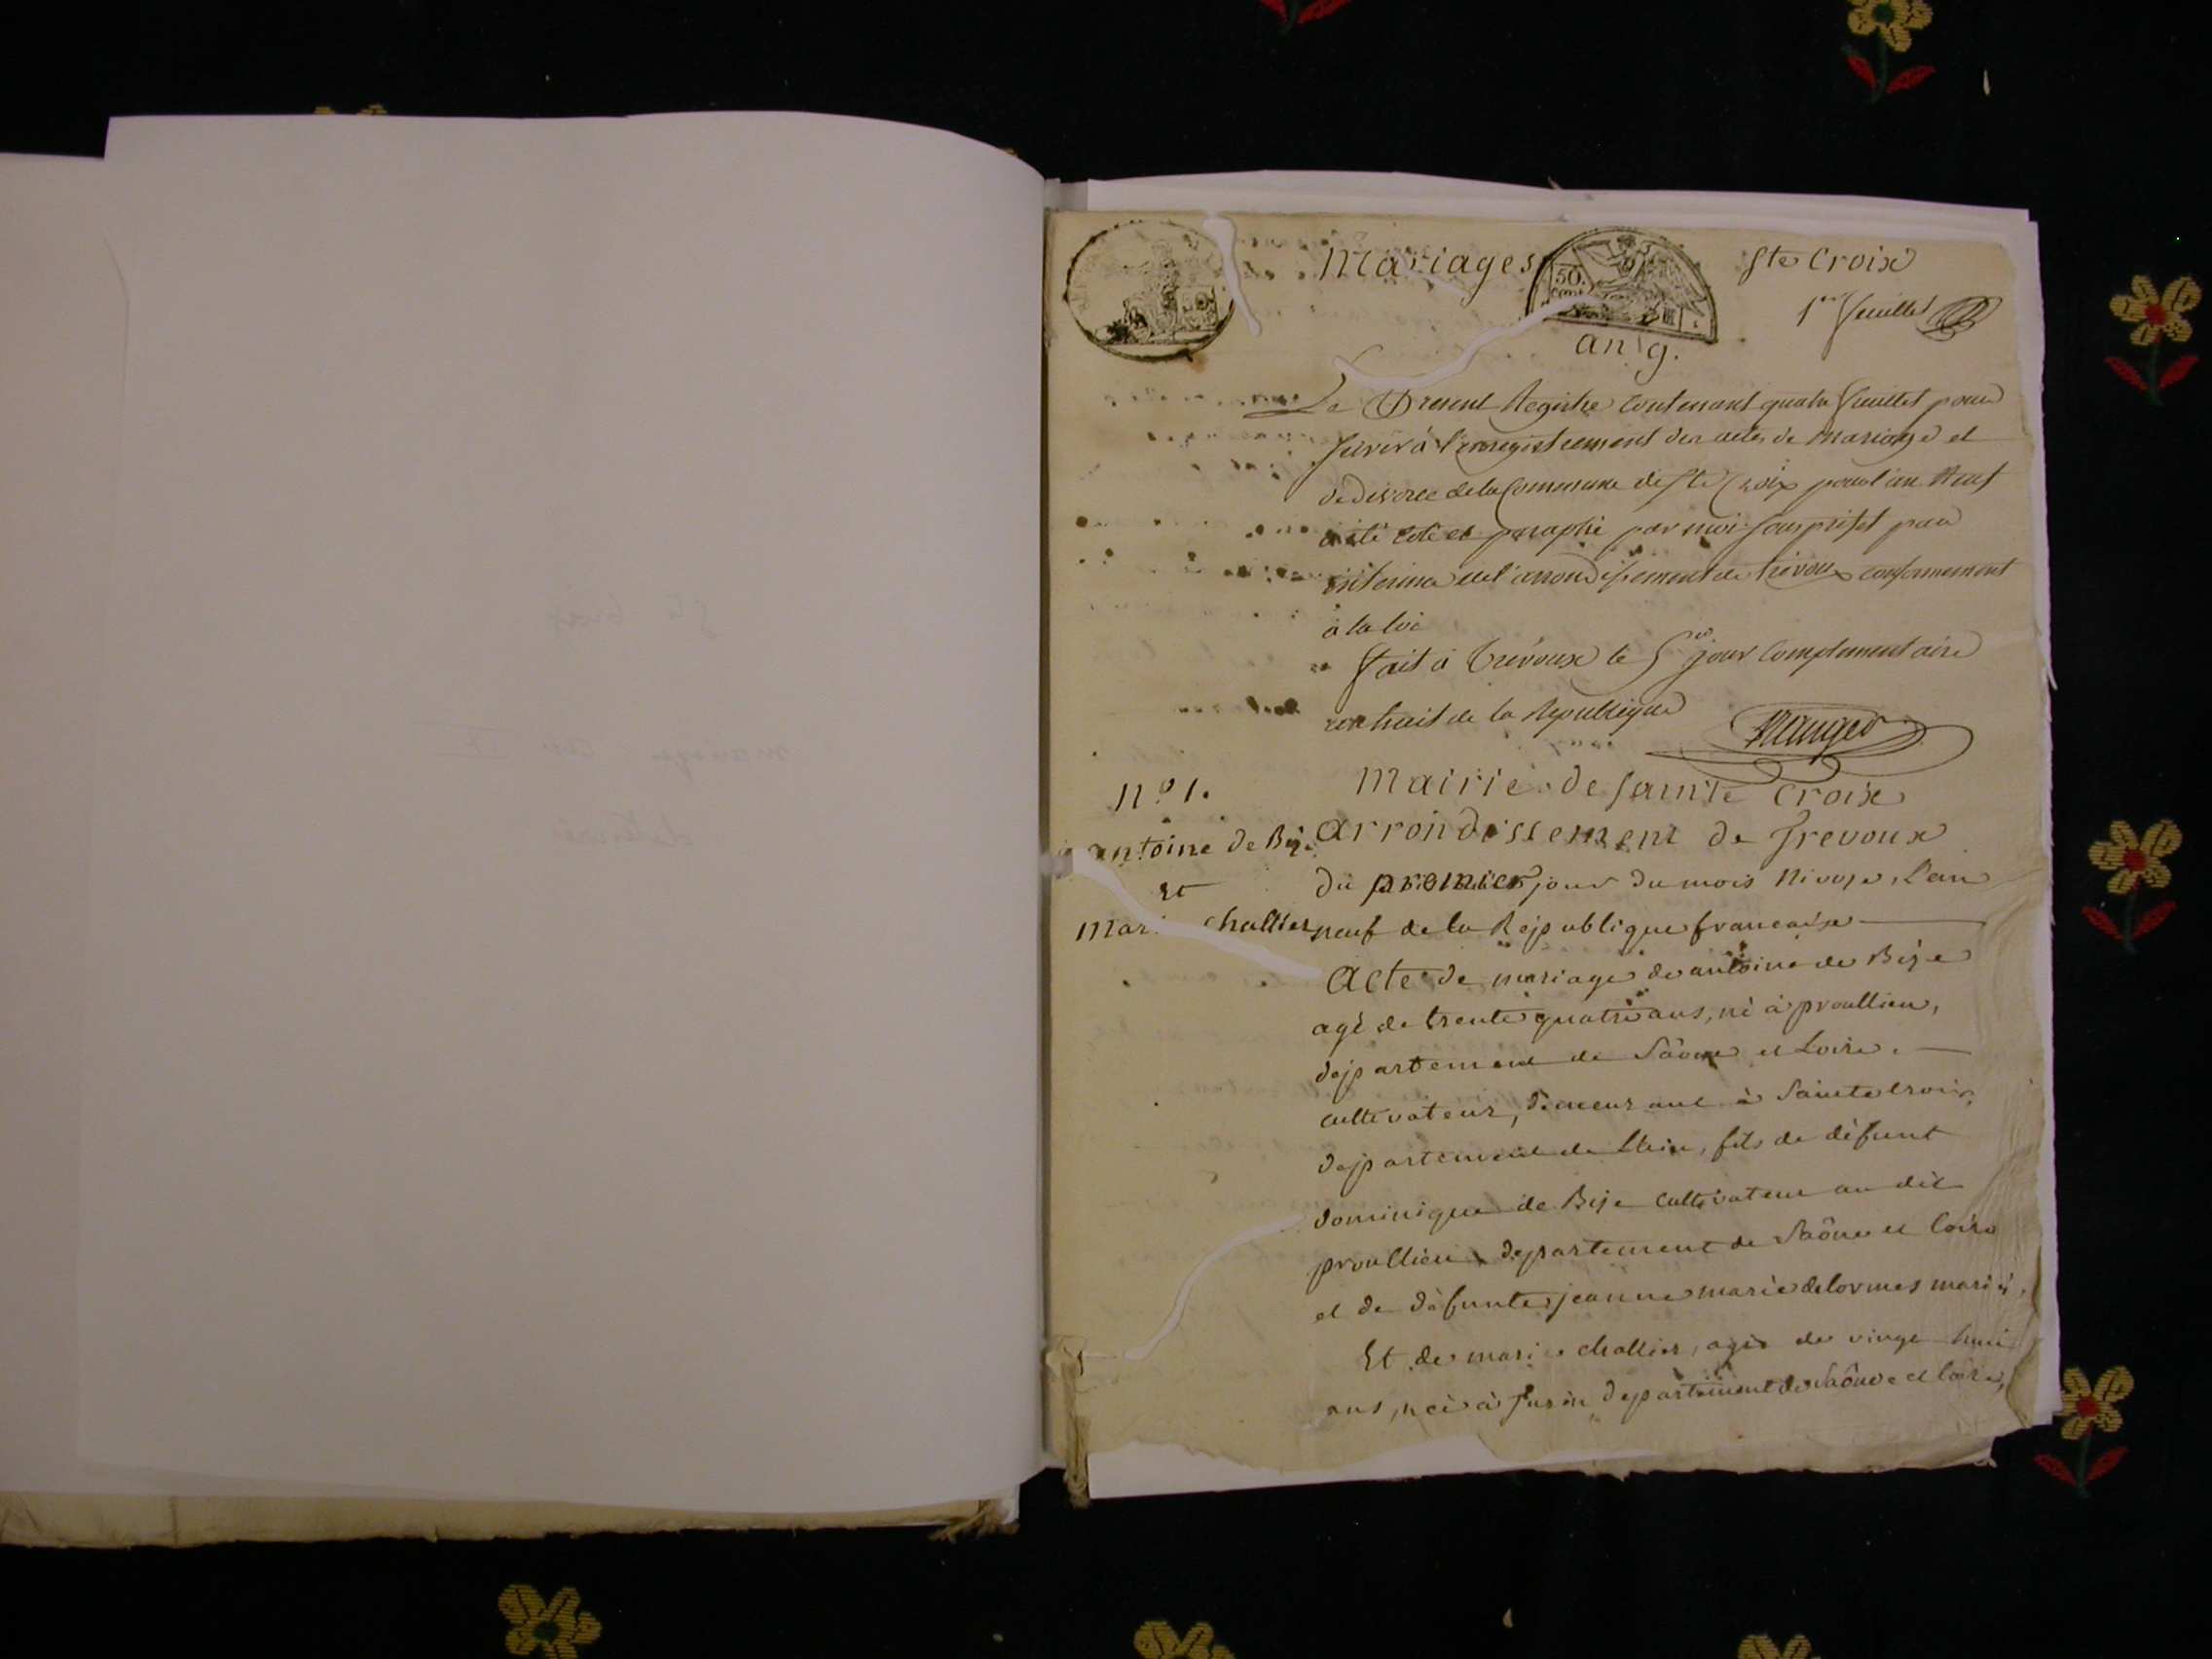 Mariages
50 Cent
an 9.
Ste Croix
1er feuillet
Le Present Registre contenant quatre feuillet pour
servir à l'enregistrement des actes de mariage et
de divorce de la Commune de Ste Croix pour l'an Neuf
a été coté et paraphé par moi sousprefet par
interim de l'arrondissement de trévoux conformement
à la loi
fait à trévoux le 5e jour complementaire
an huit de la Republique
Mairie de Sainte Croix
arrondissement de Trevoux
N.º 1.
antoine de Bije
Et
Mari challier
du premier jour du mois Nivose, l'an
neuf de la République francaise
Acte de mariage de antoine de Bije
agé de trente quatre ans, né à proullieu,
département de Sâone et Loire.
cultivateur, demeurant à Sainte Croix,
département de l'ain, fils de défunt
dominique de Bije cultivateur au dit
proullieu département de Saône et Loire
et de défunte jeanne marie delormes mariés,
Et de marie challier, agée de vingt huit
ans, née à département de Saône et loire,